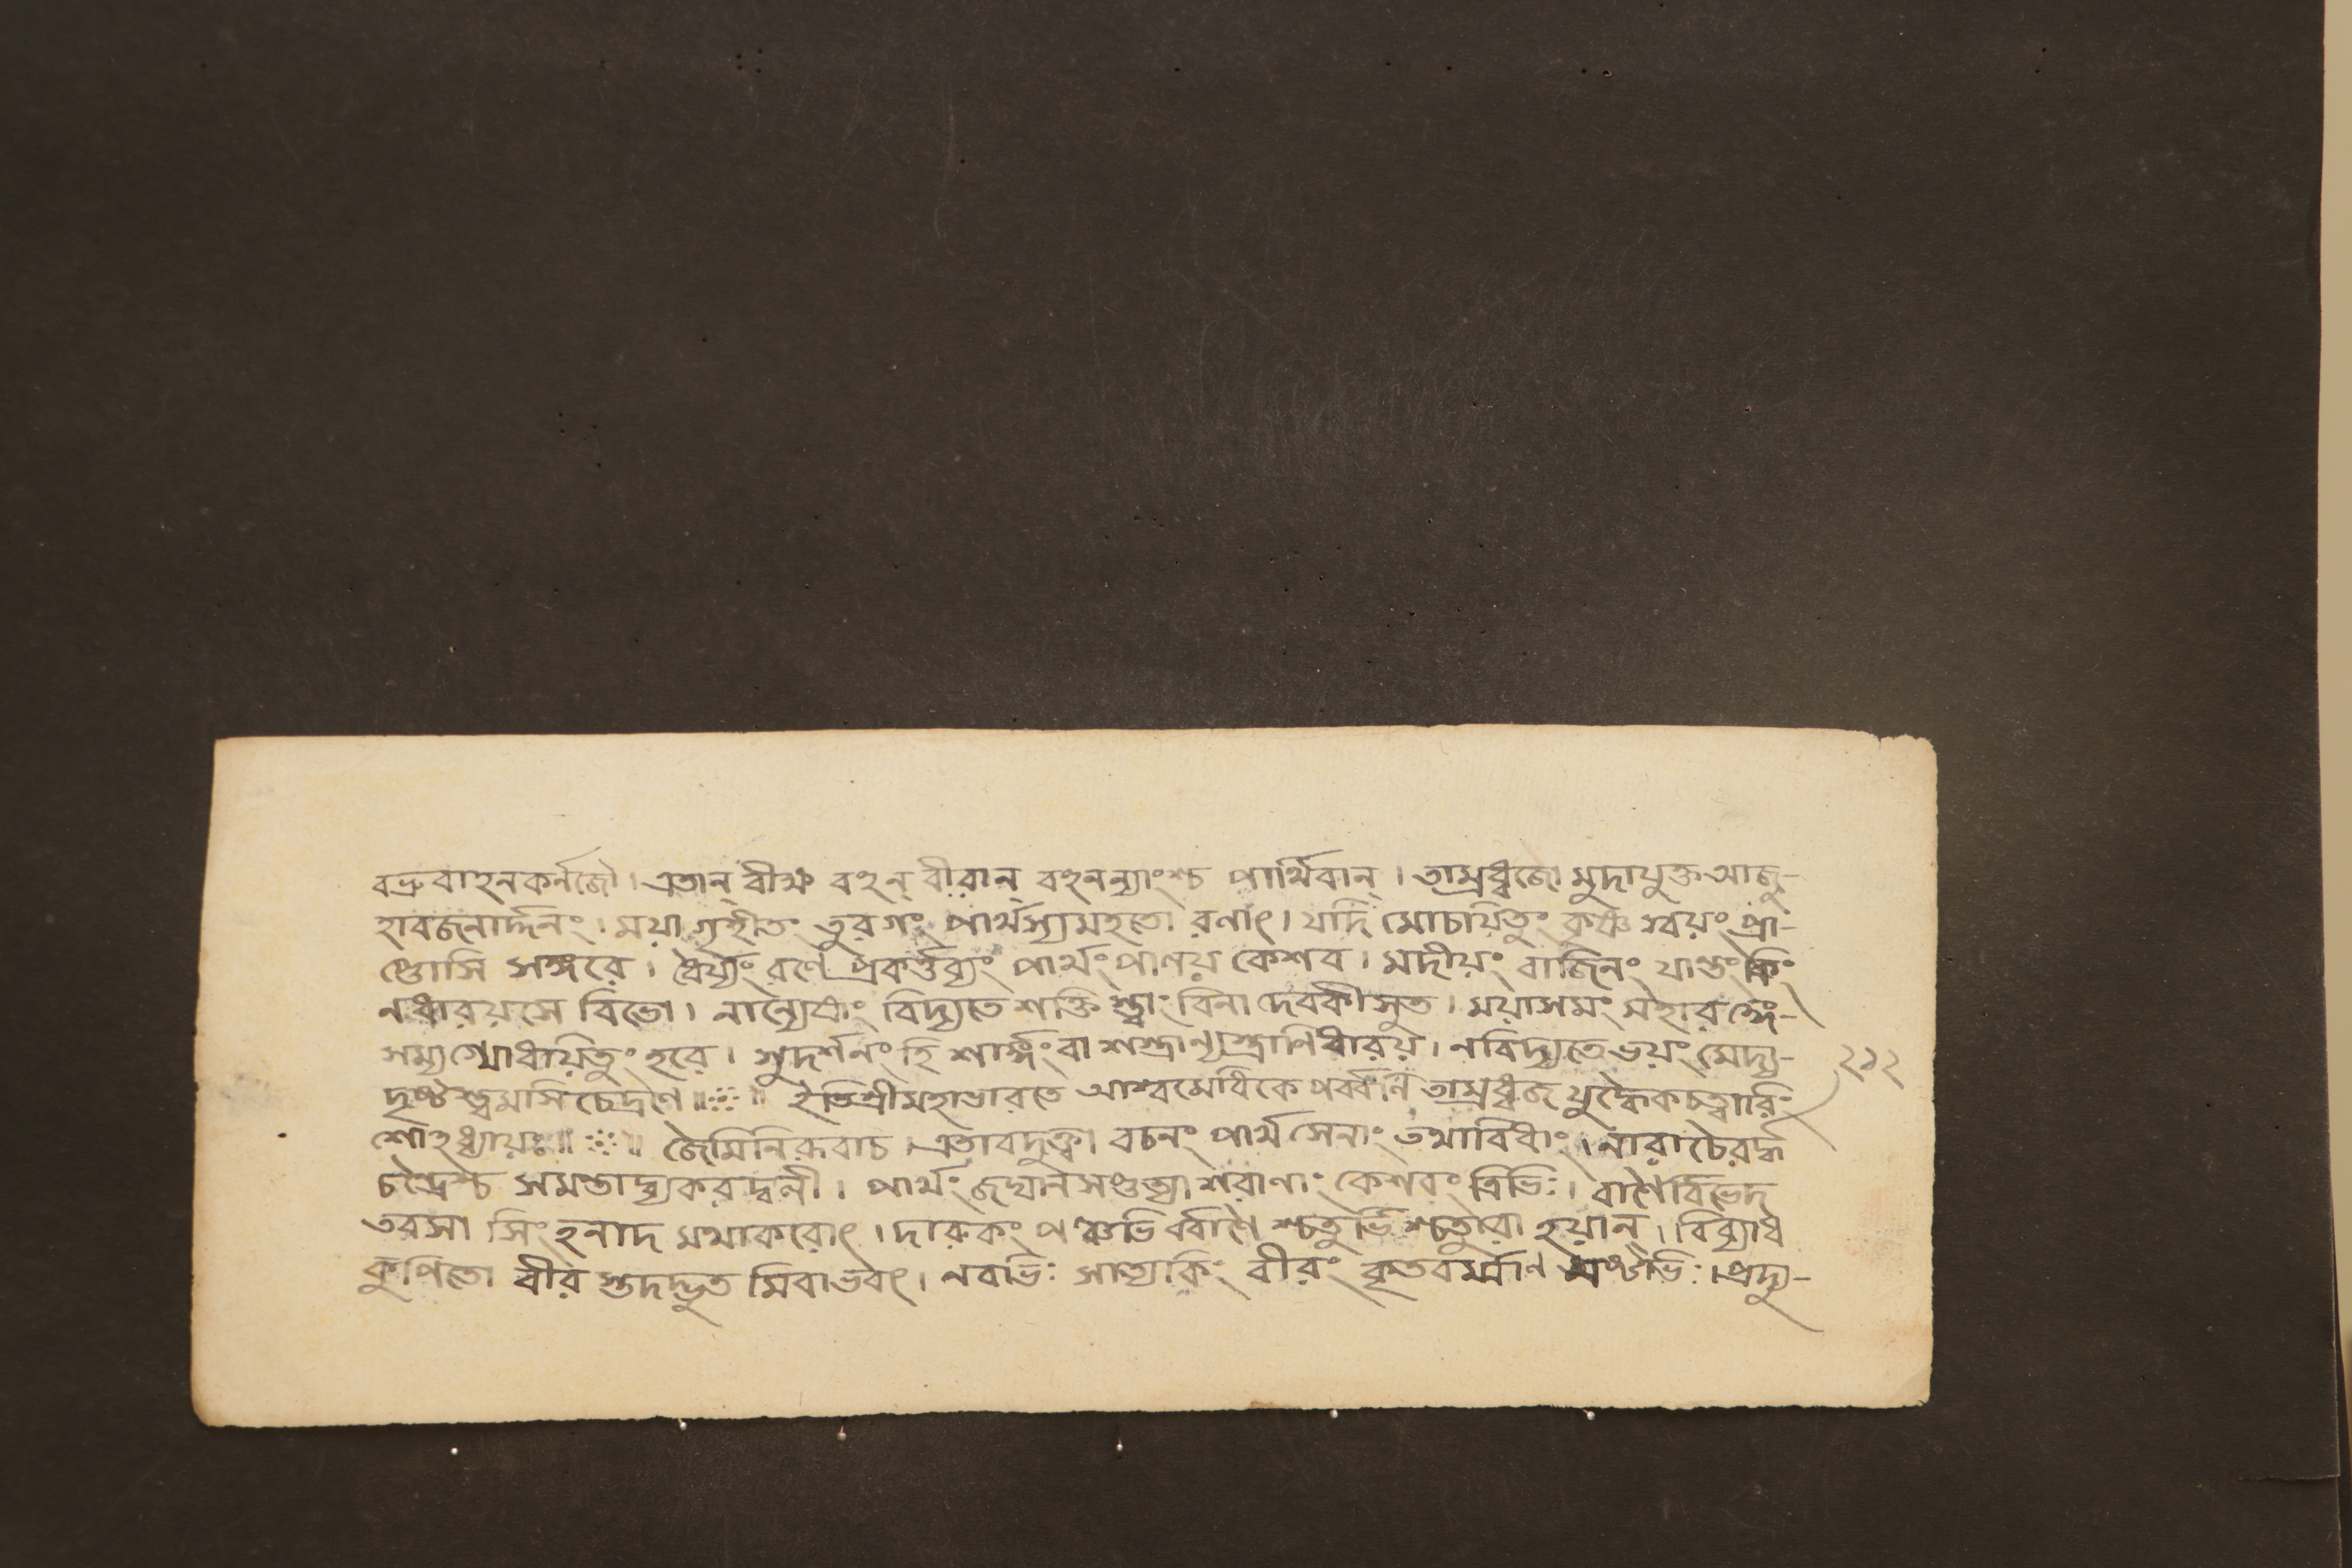 বভ্রুবাহনকর্নজৌ। এতান্ বীক্ষ্য বহূন্ বীরান্ বহূনন্যাংশ্চ পার্থিবান্। তাম্রধ্বজো মুদাযুক্ত আজু-
হাবজনার্দ্দনং। ময়া গৃহীতং তুরগং পার্থস্যমহতো রণাৎ। যদি মোচয়িতুং কৃষ্ণ স্বয়ং প্রা-
প্তোসি সঙ্গরে। ধৈর্য্যং রণে প্রকর্ত্তব্যং পার্থং পাণয় কেশব। মদীয়ং বাজিনং যান্তং কিং
নধারয়সে বিভো। নান্যেষাং বিদ্যতে শক্তি স্ত্বাং বিনা দেবকীসুত। ময়াসমং মহারঙ্গে-
সম্যগ্যোধয়িতুং হরে। সুদর্শনং হি শার্ঙ্গং বা শস্ত্রান্যস্ত্রাণি ধারয়। নবিদ্যতে ভয়ং মেদ্য-
দৃষ্ট স্ত্বমসি চেদ্রণে॥ ॥ ইতিশ্রীমহাভারতে আশ্বমেধিকে পর্ব্বনি তাম্রধ্বজ যুদ্ধৈকচত্বারিং
শোঽধ্যায়ঃ॥ ॥ জৈমিনিরুবাচ। এতাবদুক্ত্বা বচনং পার্থসেনাং তথাবিধাং। নারাচৈরর্দ্ধ
চন্দ্রৈশ্চ সমন্তাদ্ব্যকরদ্বলী। পার্থং জঘান সপ্তত্যা শরাণাং কেশবং ত্রিভিঃ। বাণৈর্বিভেদ
তরসা সিংহনাদ মথাকরোৎ। দারুকং পঞ্চভি র্ব্বাণৈ শ্চতুর্ভি শ্চতুরো হয়ান্। বিব্যাধ
কুপিতো বীর স্তদদ্ভুত মিবাভবৎ। নবভিঃ সাত্যকিং বীরং কৃতবর্ম্মাণ মষ্টভিঃ। প্রদ্যু-
২১২